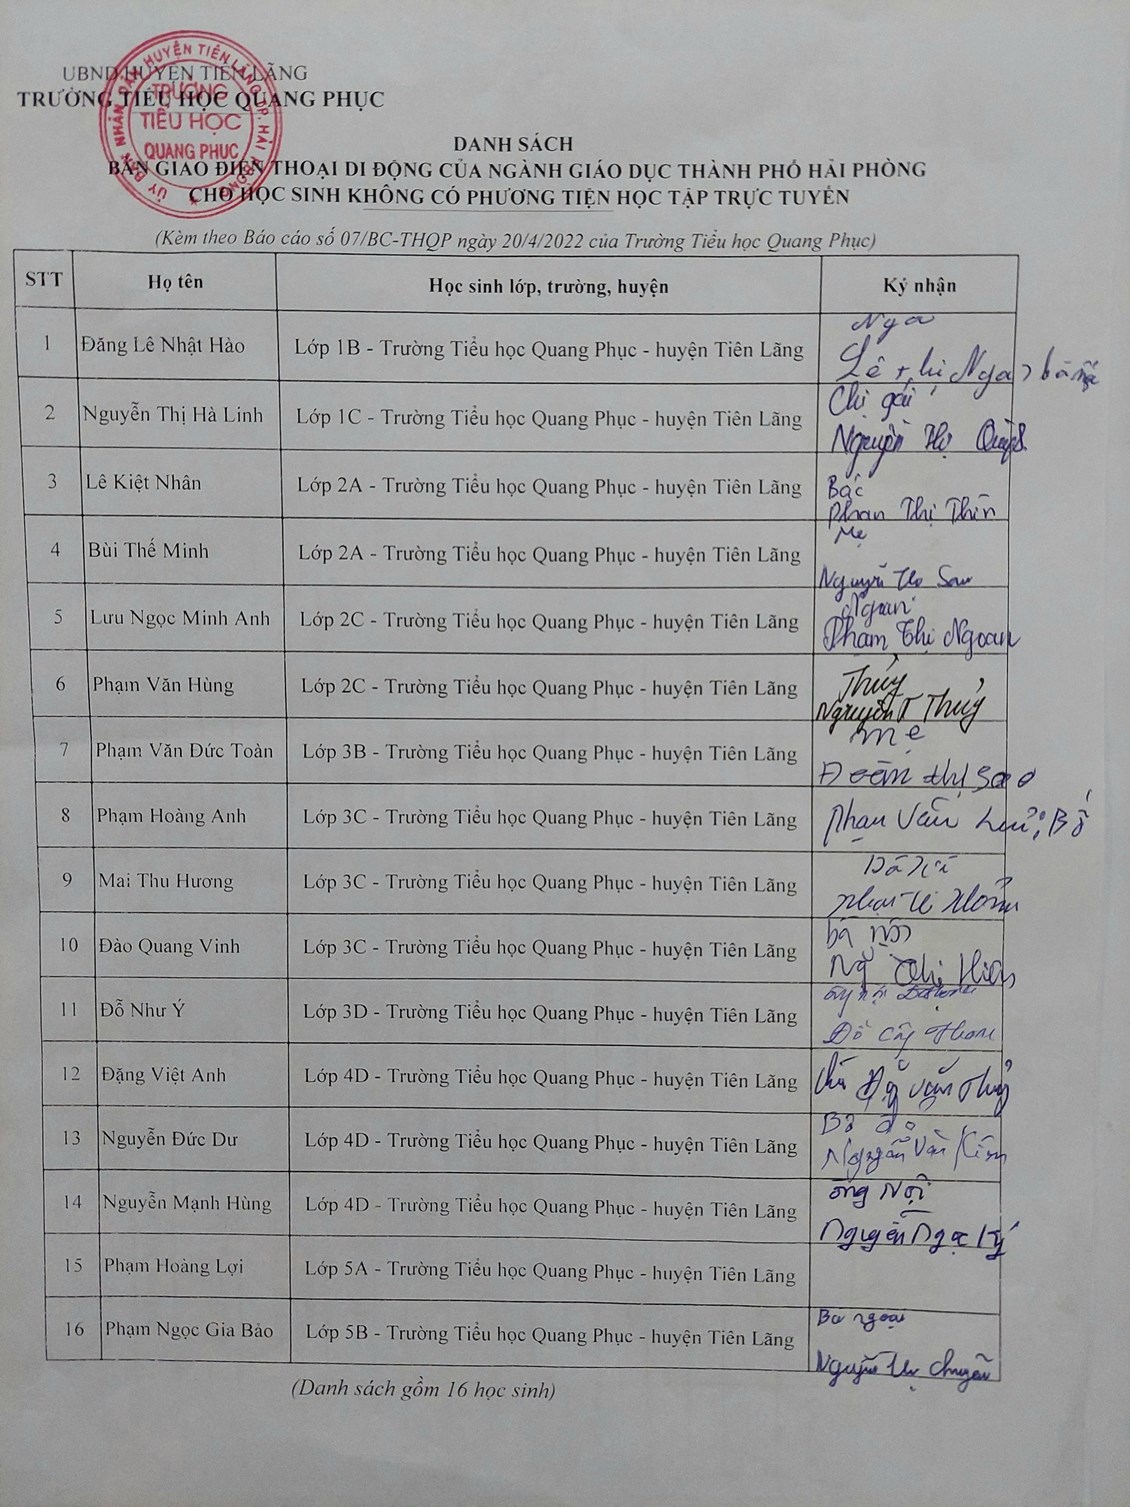 UBND HUYỆN TIÊN LÃNG
TRƯỜNG TIỂU HỌC QUANG PHỤC
ỦY BAN NHÂN DÂN HUYỆN TIÊN LÃNG TP. HẢI PHÒNG
TRƯỜNG
TIỂU HỌC
QUANG PHỤC
DANH SÁCH
BÀN GIAO ĐIỆN THOẠI DI ĐỘNG CỦA NGÀNH GIÁO DỤC THÀNH PHỐ HẢI PHÒNG
CHO HỌC SINH KHÔNG CÓ PHƯƠNG TIỆN HỌC TẬP TRỰC TUYẾN
(Kèm theo Báo cáo số 07/BC-THQP ngày 20/4/2022 của Trường Tiểu học Quang Phục)
STT Họ tên Học sinh lớp, trường, huyện Ký nhận
1 Đặng Lê Nhật Hào Lớp 1B - Trường Tiểu học Quang Phục - huyện Tiên Lãng Nga
Lê thị Nga
2 Nguyễn Thị Hà Linh Lớp 1C - Trường Tiểu học Quang Phục - huyện Tiên Lãng Chị gái
Nguyễn Thị
3 Lê Kiệt Nhân Lớp 2A - Trường Tiểu học Quang Phục - huyện Tiên Lãng Bác
Phan Thị Thìn
4 Bùi Thế Minh Lớp 2A - Trường Tiểu học Quang Phục - huyện Tiên Lãng Mẹ
Nguyễn Thị
5 Lưu Ngọc Minh Anh Lớp 2C - Trường Tiểu học Quang Phục - huyện Tiên Lãng Ngoan
Phạm Thị Ngoan
6 Phạm Văn Hùng Lớp 2C - Trường Tiểu học Quang Phục - huyện Tiên Lãng Thủy
Nguyễn T Thủy
7 Phạm Văn Đức Toàn Lớp 3B - Trường Tiểu học Quang Phục - huyện Tiên Lãng mẹ
Đoàn thị Sao
8 Phạm Hoàng Anh Lớp 3C - Trường Tiểu học Quang Phục - huyện Tiên Lãng Phạm Văn Bố
9 Mai Thu Hương Lớp 3C - Trường Tiểu học Quang Phục - huyện Tiên Lãng
10 Đào Quang Vinh Lớp 3C - Trường Tiểu học Quang Phục - huyện Tiên Lãng bà nội
Thị
11 Đỗ Như Ý Lớp 3D - Trường Tiểu học Quang Phục - huyện Tiên Lãng ông nội
Đỗ
12 Đặng Việt Anh Lớp 4D - Trường Tiểu học Quang Phục - huyện Tiên Lãng văn
13 Nguyễn Đức Dư Lớp 4D - Trường Tiểu học Quang Phục - huyện Tiên Lãng
Nguyễn Văn
14 Nguyễn Mạnh Hùng Lớp 4D - Trường Tiểu học Quang Phục - huyện Tiên Lãng ông Nội
Nguyễn Ngọc Ký
15 Phạm Hoàng Lợi Lớp 5A - Trường Tiểu học Quang Phục - huyện Tiên Lãng
16 Phạm Ngọc Gia Bảo Lớp 5B - Trường Tiểu học Quang Phục - huyện Tiên Lãng Bà ngoại
Nguyễn Thị
(Danh sách gồm 16 học sinh)